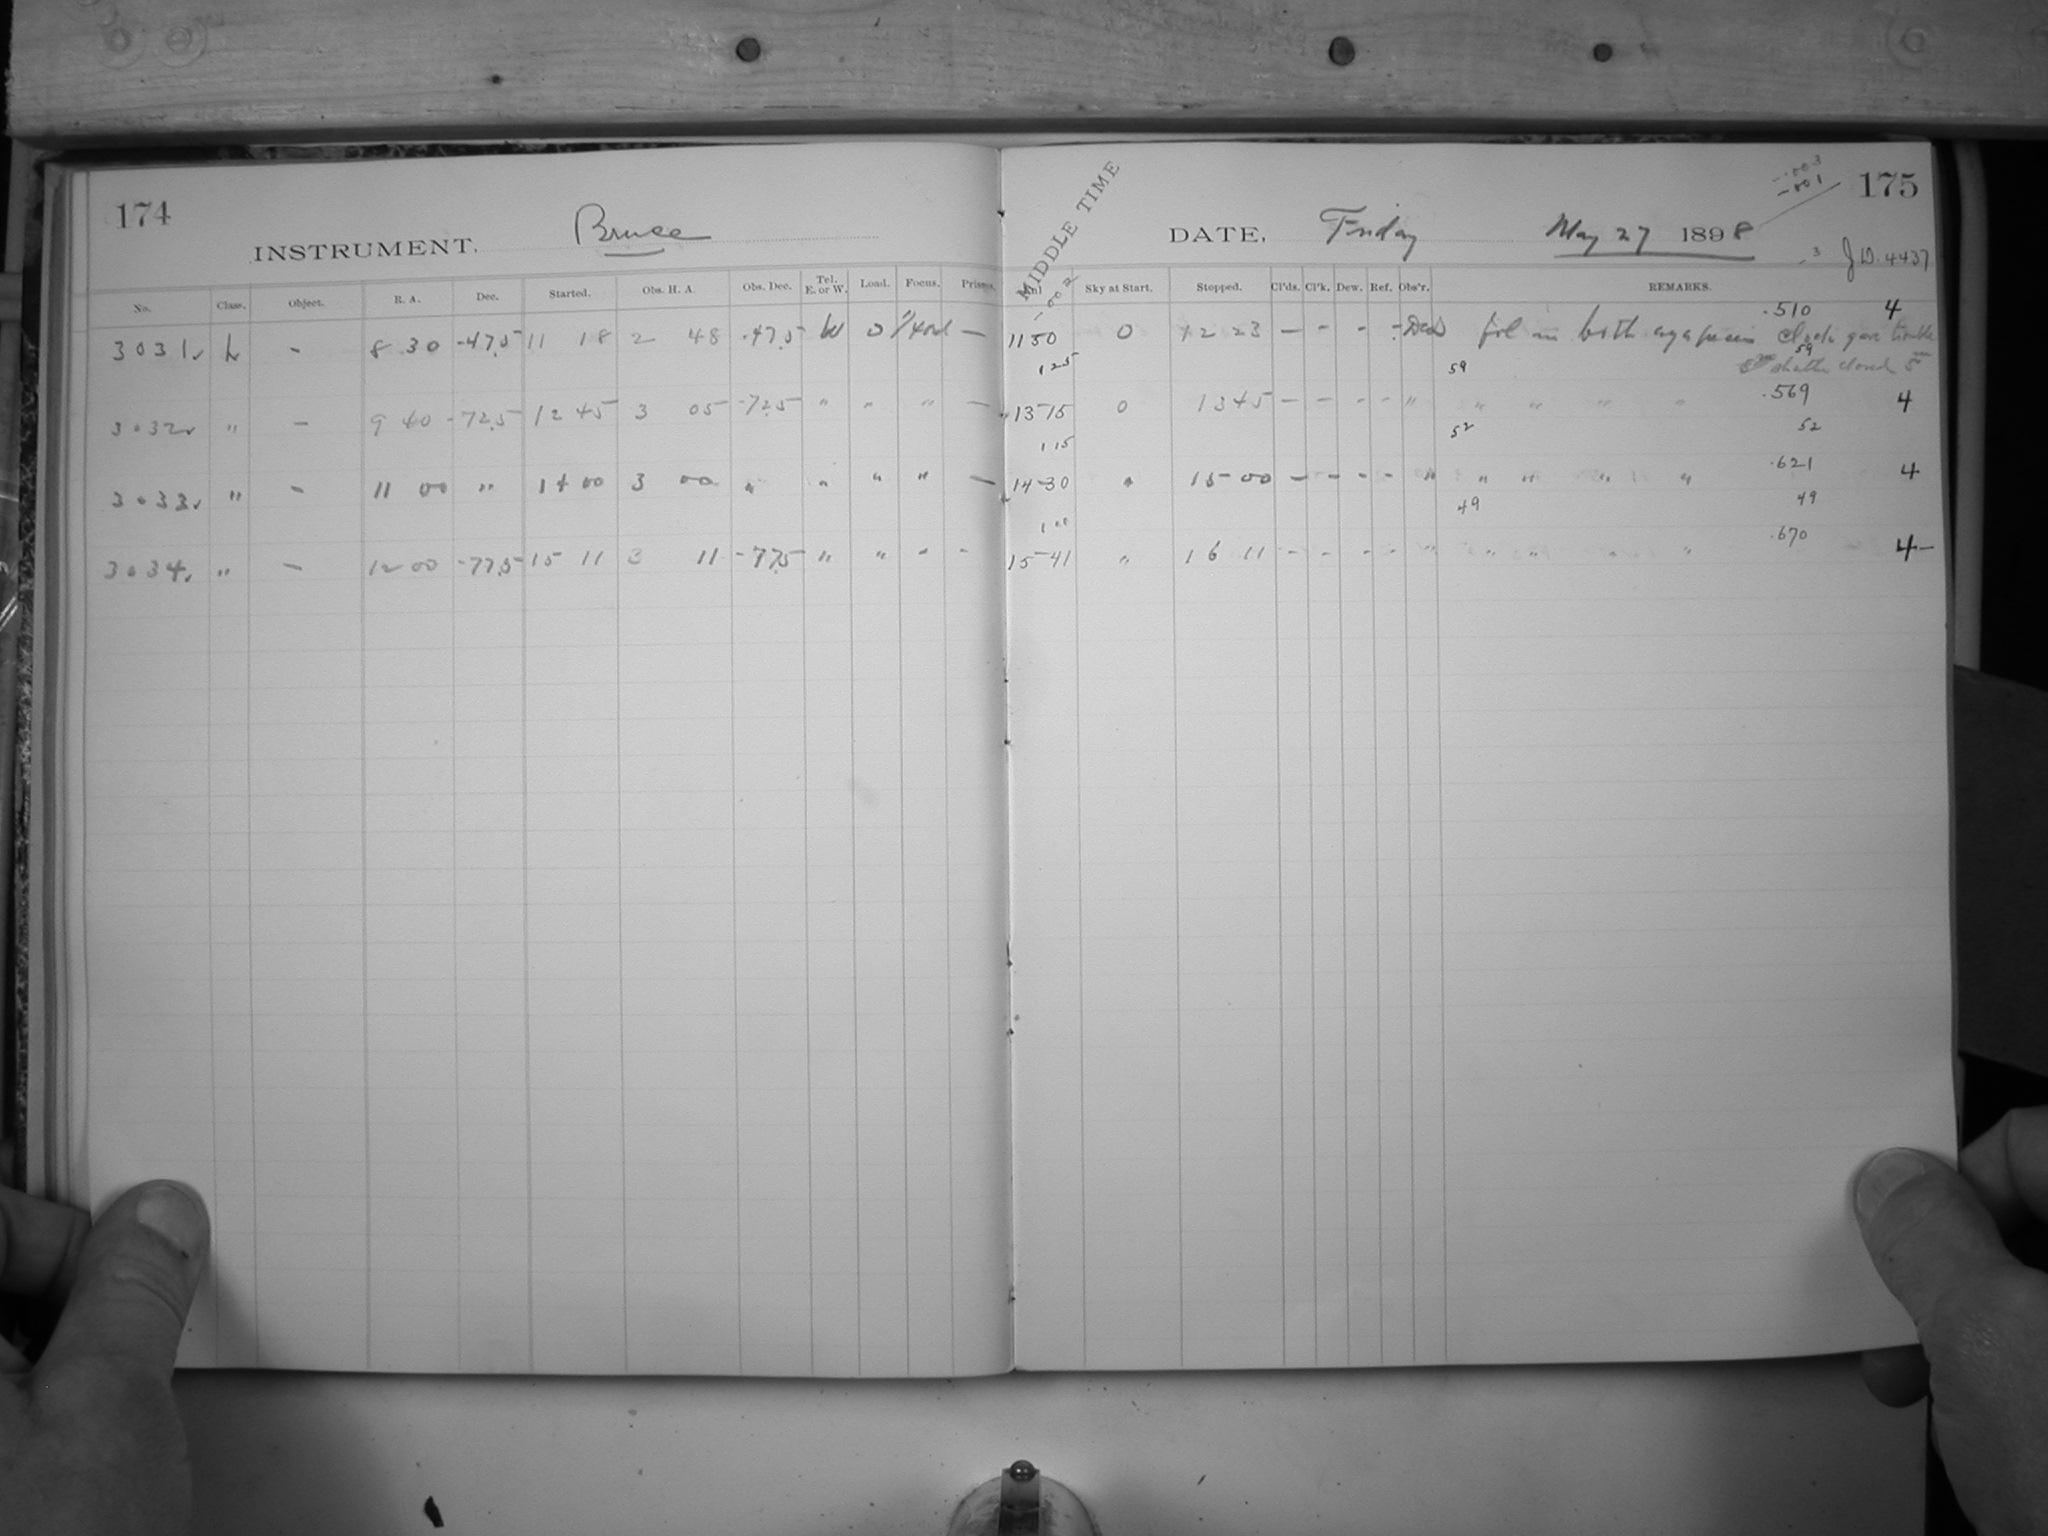 174
INSTRUMENT, Bruce
No. Class. Object. R. A. Dec. Started. Obs. H. A. Obs. Dec. Tel. E. or W. Load. Focus. Prisms.
3031 L - 8 30 -47.5 11 18 2 48 -47.5 W 0 —
3032 " - 9 40 -72.5 12 45 3 05 -72.5 " " " —
3033 " - 11 00 " 14 00 3 00 " " " " —
3034 " - 12 00 -77.5 15 11 3 11 -77.5 " " " -
MIDDLE TIME
175
-.003
-.001
DATE, Friday May 27 1898
.3 J.D. 4437
Sky at Start. Stopped. Cl'ds. Cl'k. Dew. Ref. Obs'r. REMARKS.
.510 4
1150 0 12 23 - - - - in both Clock gave trouble
125 59 59 shutter closed 5m
.569
1315 0 1345 - - - - " " " " " 4
115 52 52
.621
1430 " 1500 - - - - " " " " " 4
100 49 49
.670
1541 " 16 11 - - - - " " " " " 4-